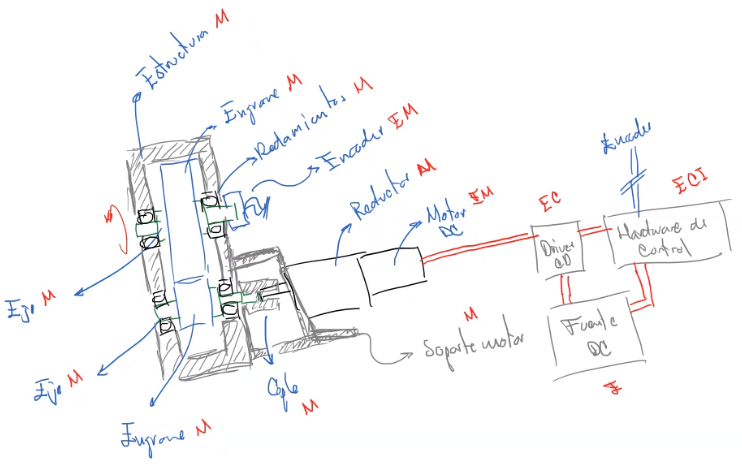 Estructura M
Engrane M
Rodamientos M
Encoder EM
Reductor M
Motor EM
DC
Encoder
EC
ECI
Driver
CD
Hardware de
Control
Fuente
DC
E
M
Soporte motor
Eje M
Eje M
Engrane M
Cople
M